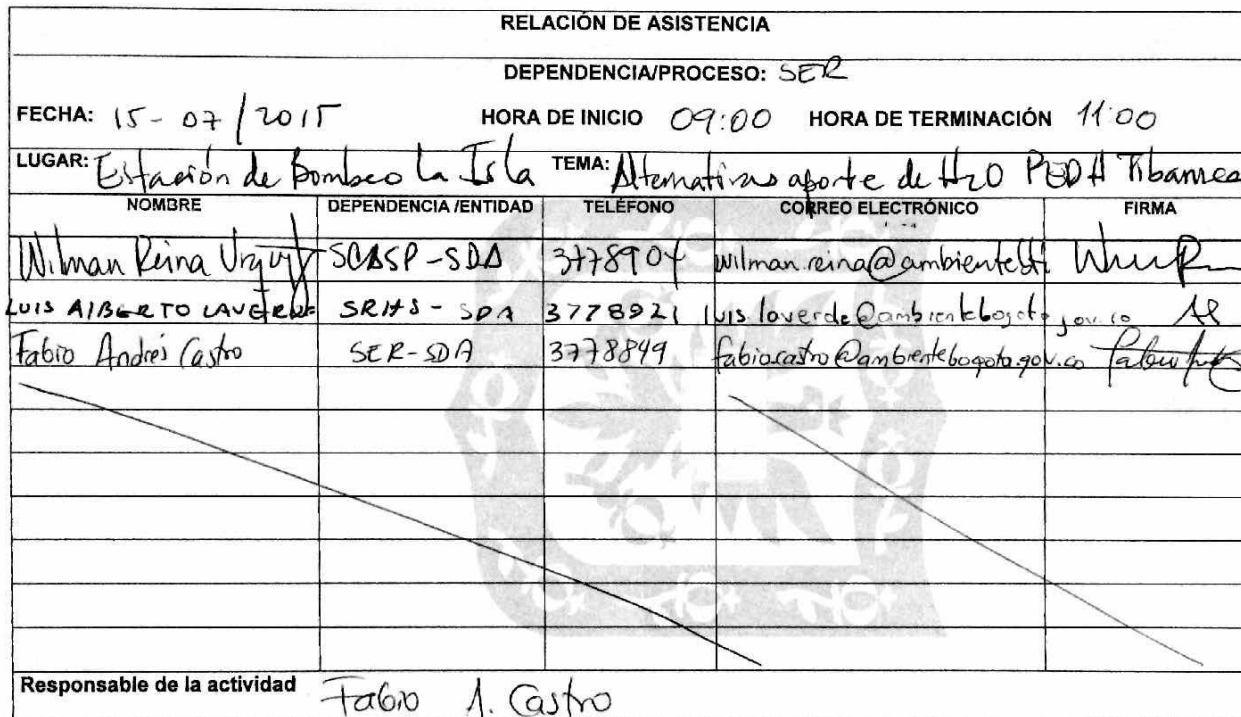 RELACIÓN DE ASISTENCIA
DEPENDENCIA/PROCESO: SER
FECHA: 15-07/2015 HORA DE INICIO 09:00 HORA DE TERMINACIÓN 11:00
LUGAR: Estación de Bombeo La Isla TEMA: Alternativas aporte de H2O PEDH Tibanica
NOMBRE DEPENDENCIA /ENTIDAD TELÉFONO CORREO ELECTRÓNICO FIRMA
Wilman Reina SCASP-SDA 3778904
LUIS AlBERTO LAVERDE SRHS - SDA 3778921 luis.laverde@ambientebogota.gov.co
Fabio Andrés Castro SER-SDA 3778849 fabio.castro@ambientebogota.gov.co
Responsable de la actividad Fabio A. Castro